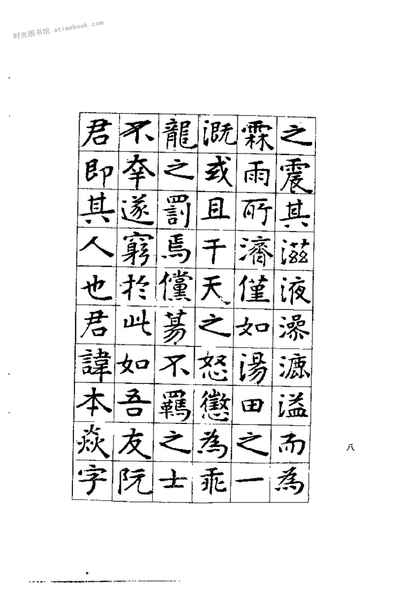 时光图书馆 atimebook.com
之震其滋液滲漉溢而為
霖雨所濟僅如湯田之一
溉或且干天之怒懲為乖
龍之罰焉儻不羈之士
不幸遂窮於此如吾友阮
君即其人也君諱本焱字
八